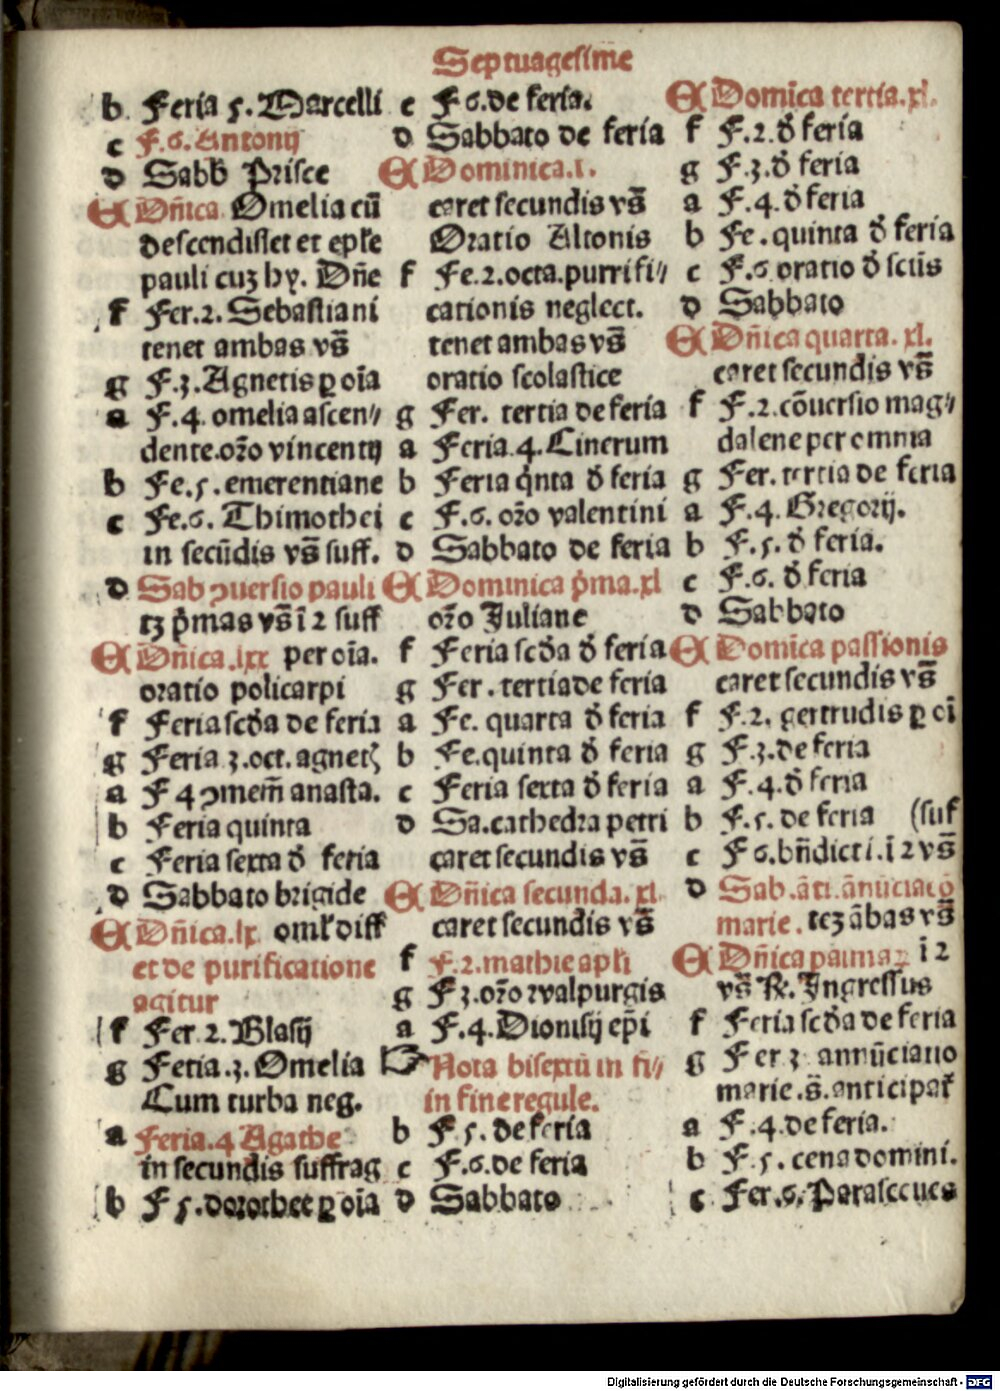 Septuagesime
b Feria 5. Marcelli
c F.6. Antonij
d Sabb Prisce
A Dñica Omelia cū
descendisset et eple
pauli cuȝ hy. Dñe
f Fer.2. Sebastiani
tenet ambas vs̄
g F.3. Agnetis ꝑ oīa
a F.4. omelia ascen⸗
dente. oꝛo vincentij
b Fe.5. emerentiane
c Fe.6. Thimothei
in secūdis vs̄ suff.
d Sab ꝯuersio pauli
tȝ p̄mas vs̄ ī 2 suff
A Dñica .lxx per oīa.
oratio policarpi
f Feria scd̄a de feria
g Feria 3. oct. agnetꝭ
a F 4 ꝯmem̄ anasta.
b Feria quinta
c Feria sexta d̄ feria
d Sabbato brigide
A Dñica.lx oml̄ diff
et de purificatione
agitur
f Fer.2. Blasij
g Feria.3. Omelia
Cum turba neg.
a Feria.4 Agathe
in secundis suffrag
b F 5. dorothee ꝑ oīa
c F 6. de feria.
d Sabbato de feria
A Dominica.l.
caret secundis vs̄
Oratio Altonis
f Fe.2. octa. purrifi⸗
cationis neglect.
tenet ambas vs̄
oratio scolastice
g Fer. tertia de feria
a Feria.4. Cinerum
b Feria q̇nta d̄ feria
c F.6. oꝛo valentini
d Sabbato de feria
A Dominica p̄ma.xl
oꝛo Juliane
f Feria scd̄a d̄ feria
g Fer. tertia de feria
a Fe. quarta d̄ feria
b Fe. quinta d̄ feria
c Feria sexta d̄ feria
d Sa. cathedra petri
caret secundis vs̄
A Dñica secunda.xl.
caret secundis vs̄
f F.2. mathie apli
g F 3. oꝛo walpurgis
a F.4. Dionisij ep̄i
☞ Nota bisextū in fi⸗
in fine regule.
b F 5. de feria
c F.6. de feria
d Sabbato
A Domīca tertia.xl.
f F.2. d̄ feria
g F.3. d̄ feria
a F.4. d̄ feria
b Fe. quinta d̄ feria
c F.6 oratio d̄ scīis
d Sabbato
A Dñica quarta.xl.
caret secundis vs̄
f F.2. cōuersio mag⸗
dalene per omnia
g Fer. tertia de feria
a F.4. Gregorij.
b F.5. d̄ feria.
c F.6. d̄ feria
d Sabbato
A Domīca passionis
caret secundis vs̄
f F.2. gertrudis ꝑ oī
g F.3. de feria
a F.4. d̄ feria
b F.5. de feria (suf
c F 6. bn̄dicti. ī 2 vs̄
d Sab. āti. ānūciatō
marie. teȝ ābas vs̄
A Dñica palmaꝝ ī 2
vs̄ ℟. Ingressus
f Feria scd̄a de feria
g Fer 3 annūciatio
marie. s̄. anticipat̄
a F.4. de feria.
b F.5. cena domini.
c Fer.6. Parasceues
Digitalisierung gefördert durch die Deutsche Forschungsgemeinschaft - DFG